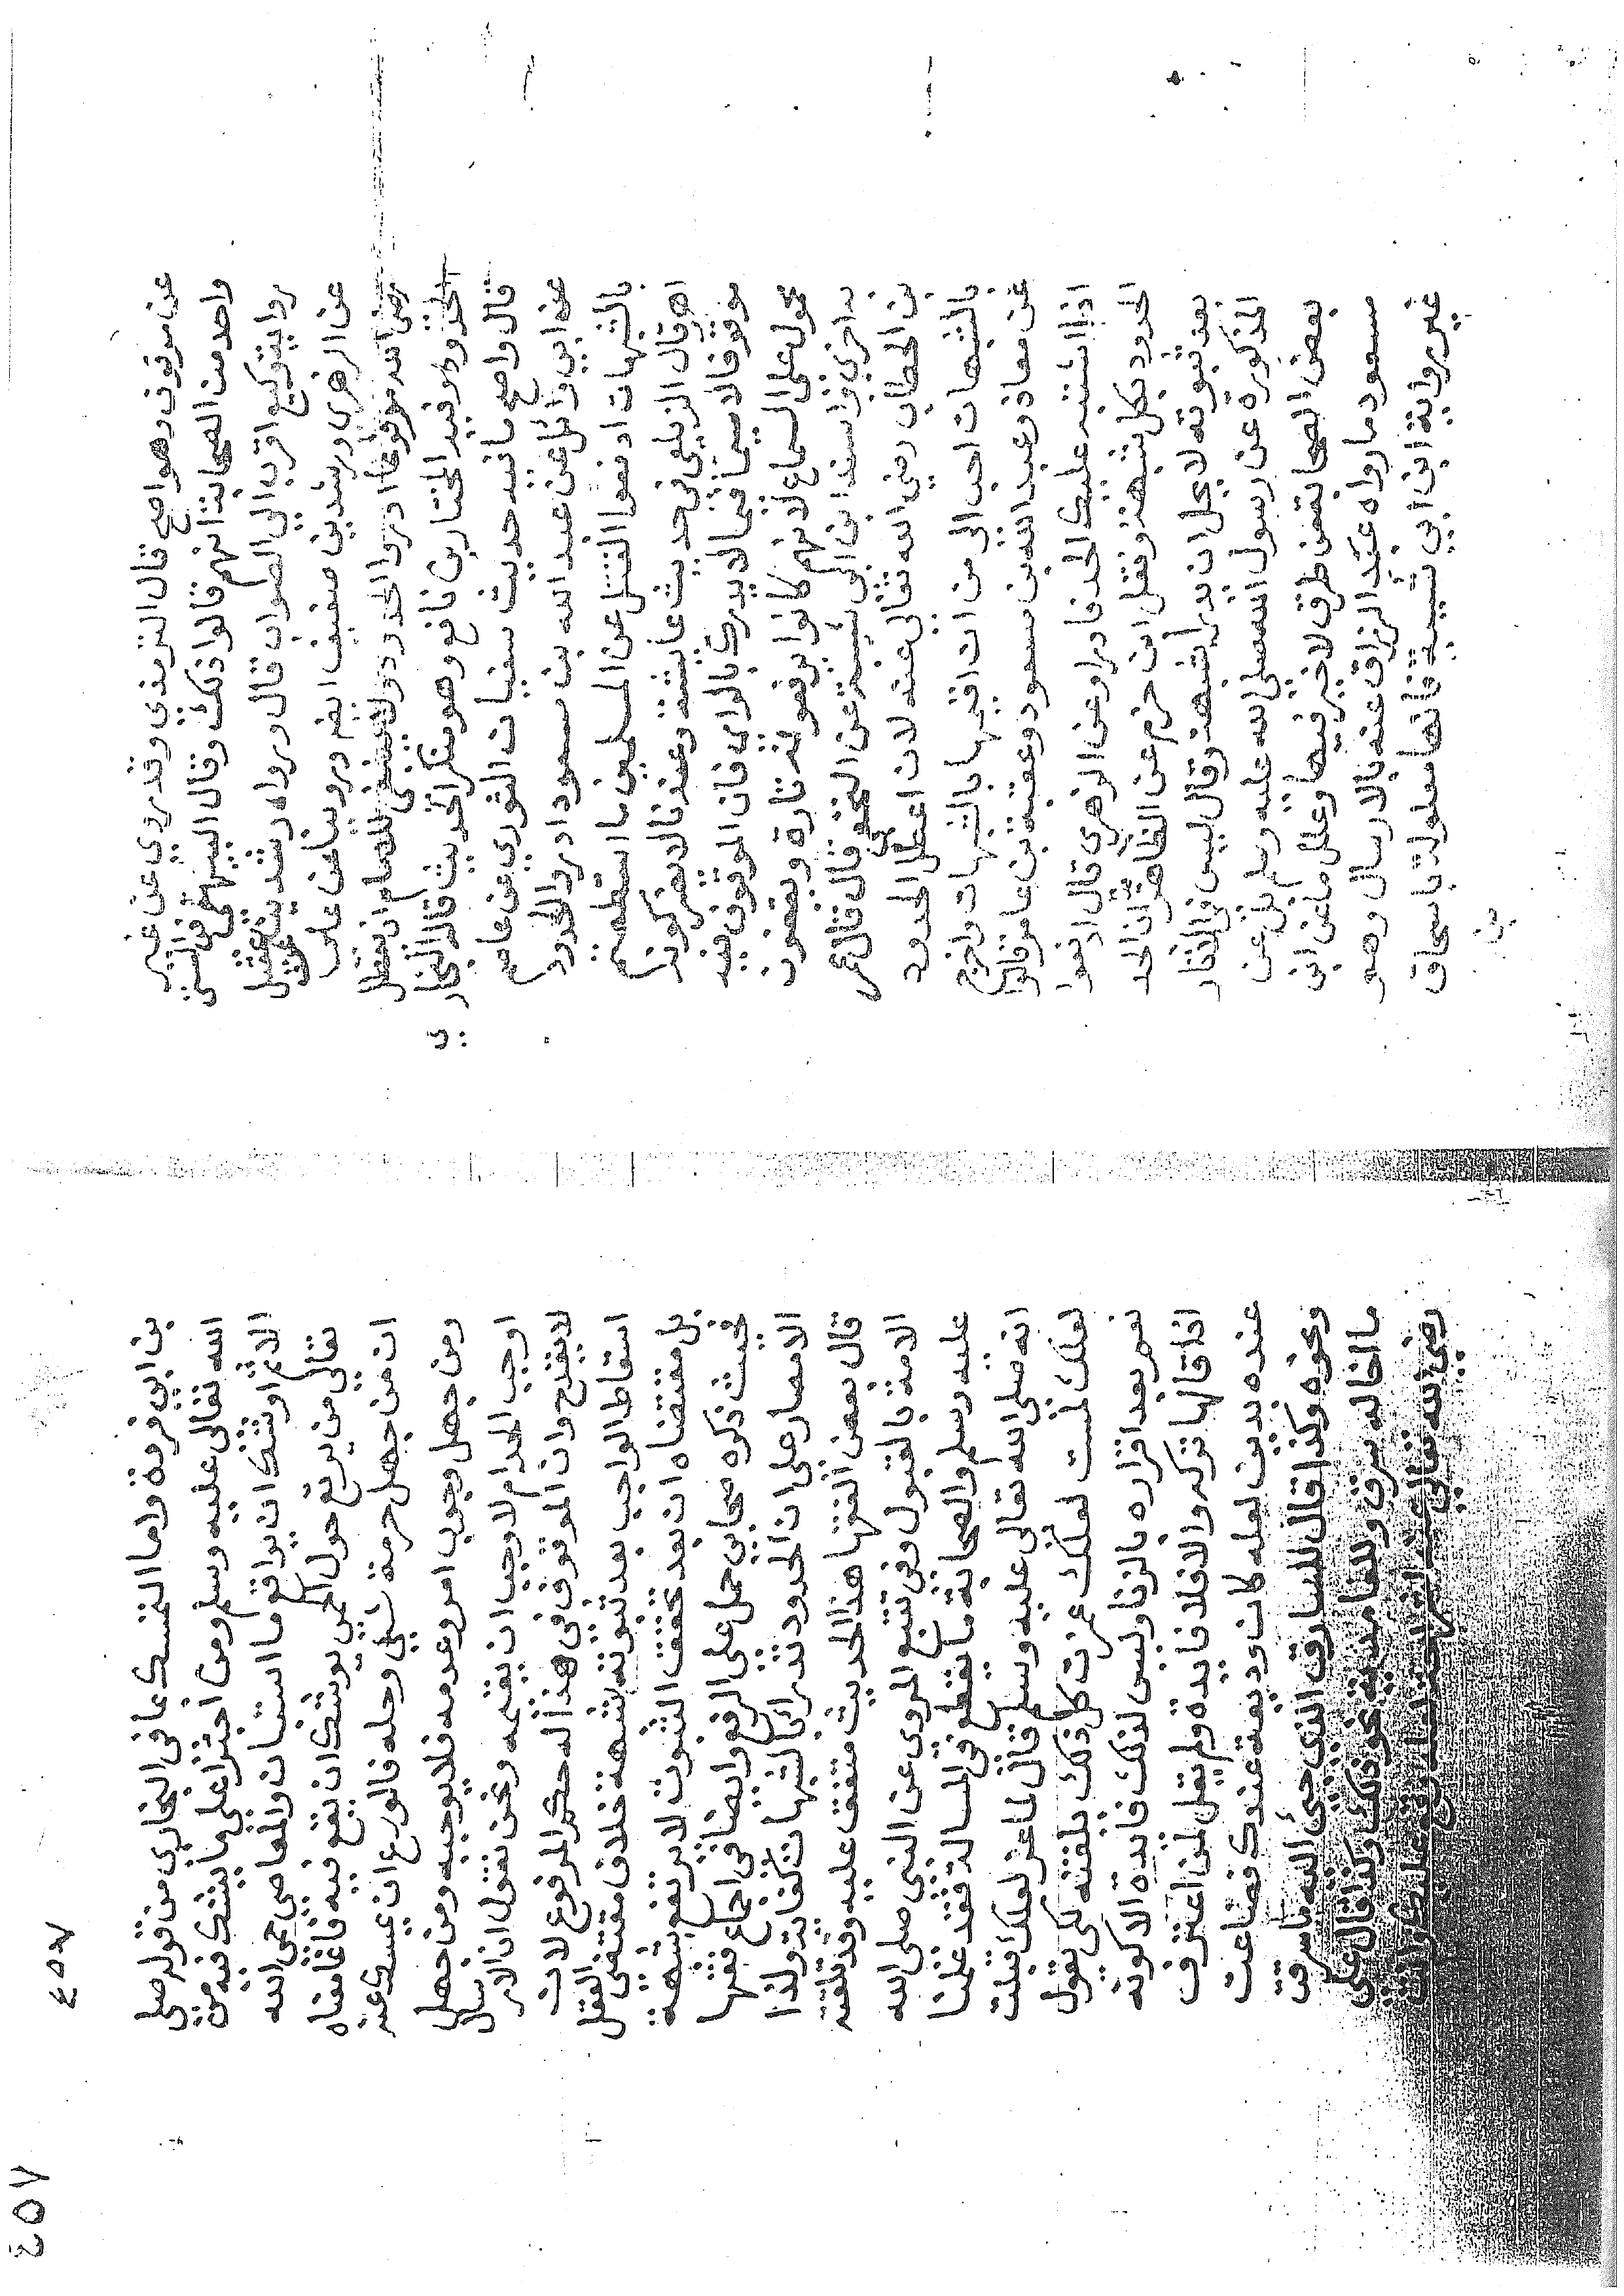 عن موقوف وهو اصح قال الترمذي وقد روي عن غير
واحد من الصحابة انهم قالوا ذلك وقال البيهقي في السنن
رواية وكيع اقرب الي الصواب قال ورواه رشدين عن عقيل
عن الزهري ورشدين ضعيف ايضا وروينا عن علي
رضي الله مرفوعا ادروا الحدود ولا ينبغي للامام ان يعطل
الحدود وفيه المختار بن نافع وهو منكر الحديث قاله البخاري
قال واصح ما فيه حديث سفيان الثوري عن عاصم
عن ابي وائل عن عبد الله بن مسعود ادروا الحدود
بالشبهات ادفعوا القتل عن المسلمين ما استطعتم
اه وقال الزيلعي في حديث عايشة وعندنا لا يضر كونه
موقوفا لا سيما فيما لا يدرك بالراي فان الموقوف فيه
محمول على السماع لانهم كانوا يرفعونه تارة ويقفون
به اخري واسند ابن ابي شيبة عن النخعي قال قال عمر
بن الخطاب رضي الله تعالى عنه لان اعطل الحدود
بالشبهات احب الى من ان اقيمها بالشبهات واخرج
عن معاذ وعبد الله بن مسعود وعقبة بن عامر قالوا
اذا اشتبه عليك الحد فادرا وعن الزهري قال ادفعوا
الحدود بكل شبهة ونقل ابن حزم عن الظاهرية ان الحد
بعد ثبوته لا يحل ان يدرأ بشبهة وقال ليس في الاثار
المذكورة عن رسول الله صلى الله عليه وسلم بل عن
بعض الصحابة من طرق لا خير فيها وعلل ما عن ابن
مسعود مما رواه عبد الرزاق عنه بالارسال وهو
غير رواية ابن ابي شيبة فانها معلولة باسحاق
بن
٤٥٧
٤٥٧
بن ابي فروة واما التمسك بما في البخاري من قوله صلى
الله تعالى عليه وسلم ومن اجترا على ما يشك فيه من
الاثم اوشك ان يواقع ما استبان والمعاصي حمى الله
تعالى من يرتع حول الحمى يوشك ان يقع فيه فان معناه
ان من جهل حرمة شيي وحله فالورع ان يمسك عنه
ومن جهل وجوب امر وعدمه فلا يوجبه ومن جهل
اوجب الحد ام لا وجب ان يقيمه ونحن نقول ان الارسال
لا يقدح وان الموقوف في هذا له حكم المرفوع لان
اسقاط الواجب بعد ثبوته بشبهة خلاف مقتضى العقل
بل مقتضاه ان بعد تحقق الثبوت لا يرتفع بشبهة
فحيث ذكره صحابي حمل على الرفع وايضا في اجماع فقها
الامصار على ان الحدود تدرا بالشبهات كفاية ولذا
قال بعض الفقها هذا الحديث متفق عليه وقد تلقته
الامة بالقبول وفي تتبع المروي عن النبي صلى الله
عليه وسلم والصحابة ما يقطع في المسالة فقد علمنا
انه صلى الله تعالى عليه وسلم قال لماعز لعلك قبلت
لعلك لمست لعلك غمزت كل ذلك يلقنه لكي يقول
نعم بعد اقراره بالزنا وليس لذلك فايدة الا كونه
اذا قالها ترك والا فلا فايدة ولم يقل لمن اعترف
عنده بدين لعله كان وديعة عندك فضاعت
ونحوه وكذا قال للسارق الذي جئ اليه ما سرق
ما اخاله سرق وللغامدية نحو ذلك وكذا قال علي
رضي الله تعالى عنه لشراحة لعله وقع عليك وانت